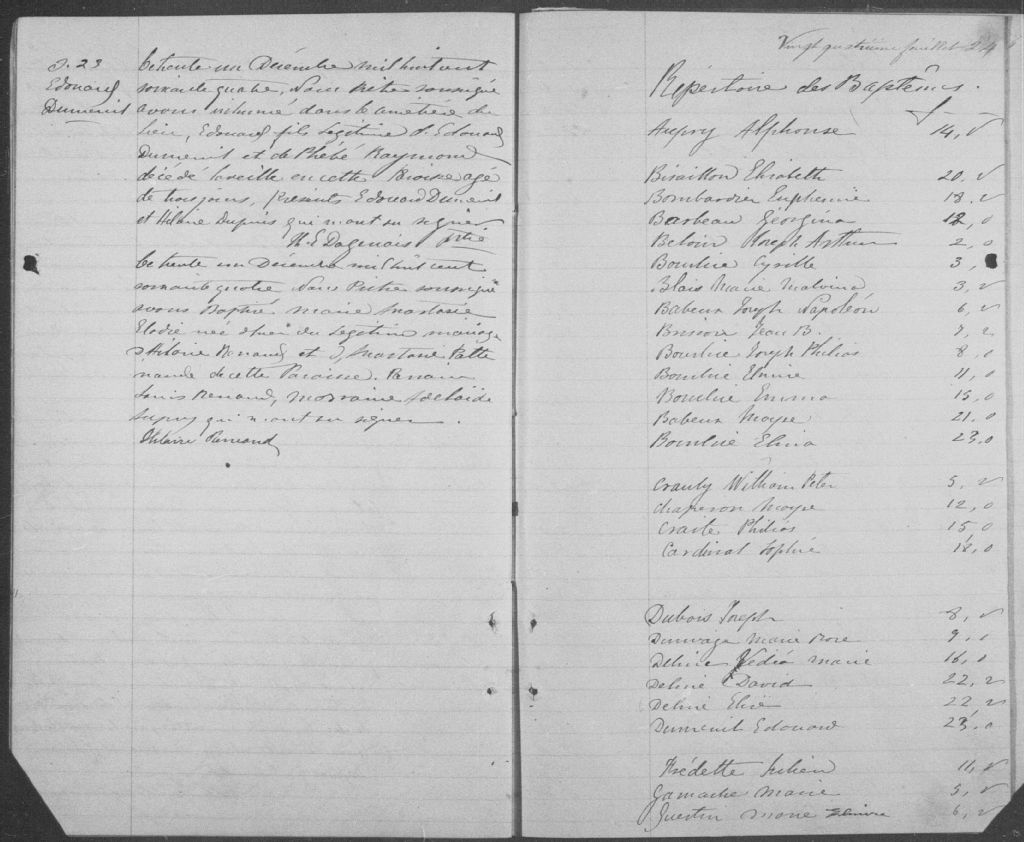 S. 23
Edouard
Dumenil
Le trente un Décembre mil huit cent
soixante quatre, Nous Prêtre soussigné
avons inhumé dans le cimetière du
lieu, Edouard fils légitime d'Edouard
Dumenil et de Phébé Raymond
décédé la veille en cette Paroisse age
de trois jours, présents Edouard Dumenil
et Hilaire Dupuis qui n'ont su signer
Dagenais Ptre
Le trente un Décembre mil huit cent
soixante quatre Nous Prêtre soussigné
avons Baptisé Marie Anastasie
Elodie née d'hier du légitime mariage
d'Hilaire Renaud et d'Anastasie
de cette Paroisse. Parrain
Louis Renaud, marraine Adelaïde
Aupry qui n'ont su signer.
Hilaire Renaud
Vingt quatrième feuillet 24
Répertoire des Baptêmes.
f
Aupry Alphonse 14, v
Bisaillon Elisabeth 20, v
Bombardier Euphémie 18, v
Barbeau Géorgina 12, o
Beloin Joseph Arthur 2, o
Bourdie Cyrille 3,
Blais Marie Malvina 3, v
Babeux Joseph Napoléon 6, v
Jean B. 7, v
Joseph Philias 8, o
Elmire 11, o
Emma 15, o
Babeux Moyse 21. o
Elina 23, o
William Peter 5, v
Chaperon Moyse 12, o
Craite Philias 15, o
Cardinal Sophie 18, o
Dubois Joseph 8, v
Marie Rose 9, o
Deline Marie 16, o
Deline David 22, v
Deline Elise 22, v
Dumenil Edouard 23, o
Frédette Julien 11, v
Gamache Marie 5, v
Guertin Marie 6, v